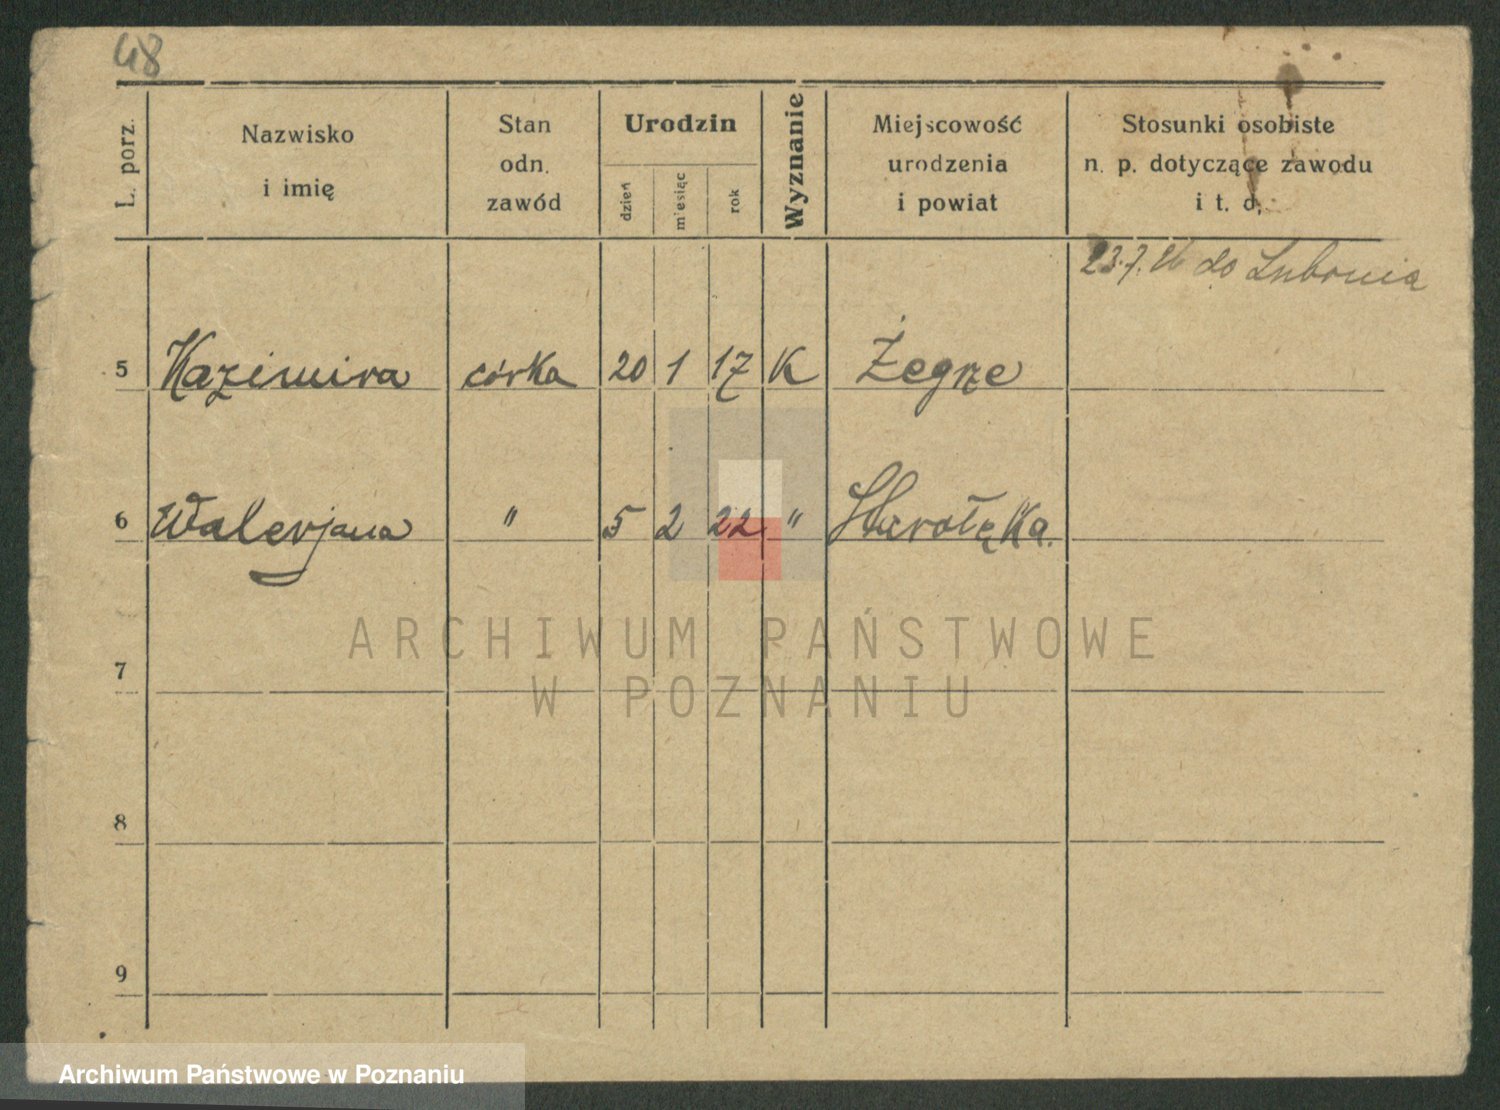 48
L. porz.
Nazwisko
i imię
Stan
odn.
zawód
Urodzin
dzień
miesiąc
rok
Wyznanie
Miejscowość
urodzenia
i powiat
Stosunki osobiste
n. p. dotyczące zawodu
i t. d.
23.7.26 do Lubonia
5 Kazimira córka 20 1 17 K Żegrze
6 Walerjana " 5 2 22 " Starołęka.
7
8
9
ARCHIWUM PAŃSTWOWE
W POZNANIU
Archiwum Państwowe w Poznaniu